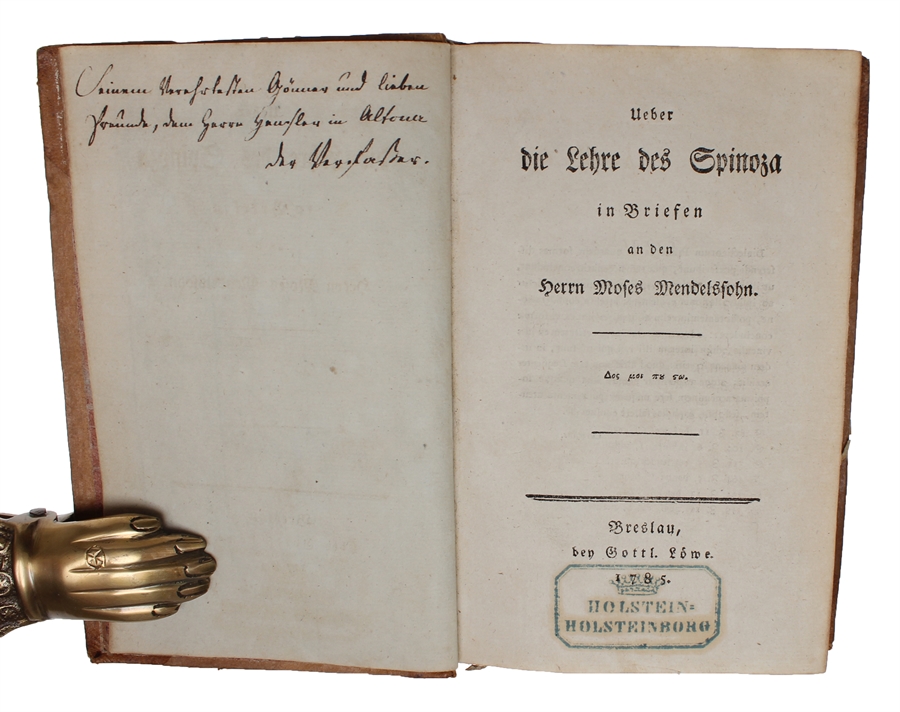 Seinem Verehrtesten Gönner und lieben
Freunde, dem Herrn Hensler in Altona
der Verfaßer.
Ueber
die Lehre des Spinoza
in Briefen
an den
Herrn Moses Mendelssohn.
Δος μοι πȣ ϛω.
Breslau,
bey Gottl. Löwe.
1785.
HOLSTEIN=
HOLSTEINBORG